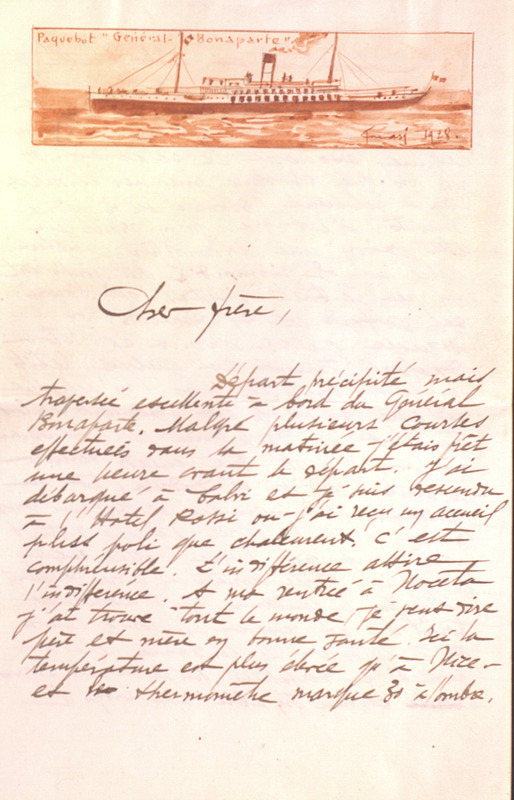 Paquebot "Général-Bonaparte"
1928.
Cher frère,
Départ précipité mais
traversée excellente à bord du Général
Bonaparte. Malgré plusieurs courses
effectuées dans la matinée j'étais prêt
une heure avant le départ. J'ai
débarqué à Calvi et je suis descendu
à l'Hotel Rossi ou j'ai reçu un accueil
plus poli que chaleureux. C'est
compréhensible. L'indifférence attire
l'indifférence. A ma rentrée à Noceta
j'ai trouvé tout le monde, je veux dire
père et mère en bonne santé. Ici la
température est plus élevée qu'à Nice
et le thermomètre marque 30 à l'ombre.